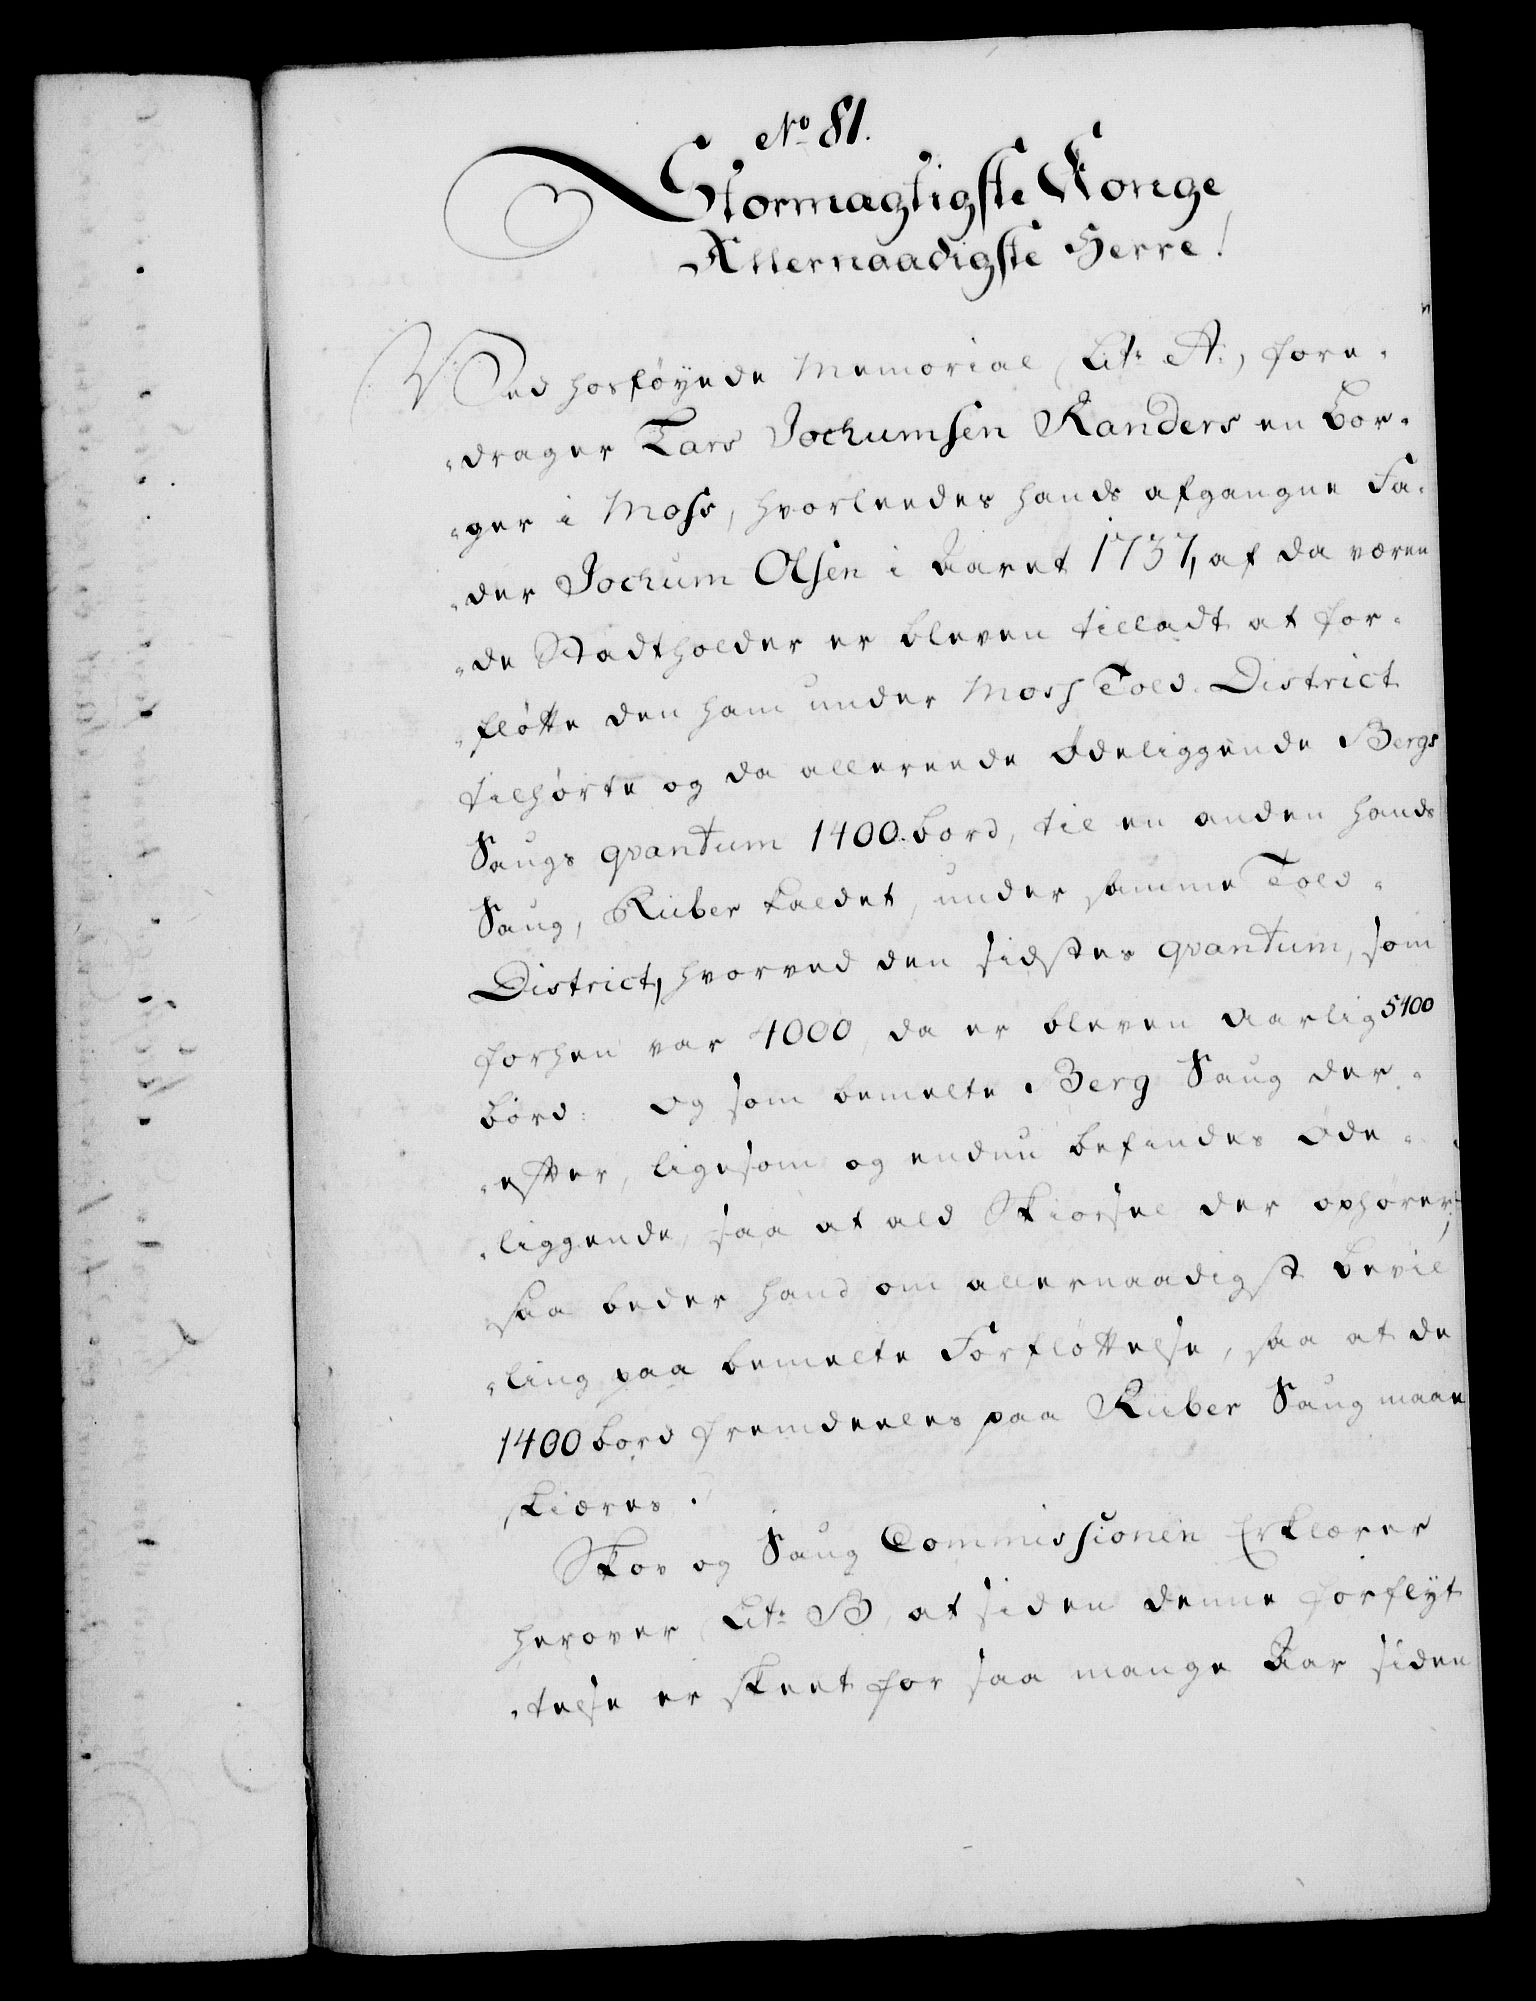 No 81.
Stormagtigste Konge
Allernaadigste Herre!
Ved hosføyede Memorial Litr A:, fore-
-drager Lars Jochumsen Randers en Bor-
-ger i Moss, hvorleedes hands afgangne Fa-
-der Jochum Olsen i Aaret 1737, af da væren
-de Stadtholder er bleven tilladt at for-
-fløtte den ham under Moss Told-District
tilhørte og da allereede Ødeliggende Bergs
Saugs qvantum 1400 bord, til en anden hands
Saug, Kuber kaldet, under samme Told-
District, hvorved den sidstes qvantum, som
forhen var 4000, da er bleven aarlig 5400
bord: Og som bemelte Berg Saug der-
-efter, ligesom og endnu befindes Øde-
-liggende, saa at ald Skiørsel der ophører,
saa beder hand om allernaadigst Bevil
-ling paa bemelte Forfløttelse, saa at de
1400 bord fremdeeles paa Kuber Saug maae
skiæres.
Skov og Saug Commissionen Erklærer
herover Litr B, at siden denne forflyt
-telse er skeet for saa mange Aar siden